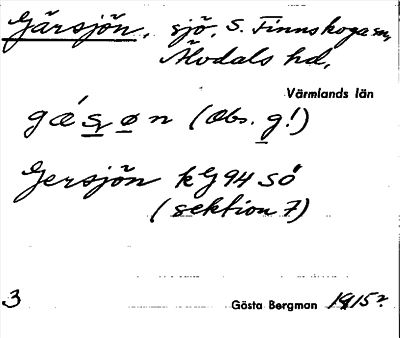 Gärsjön, sjö, S. Finnskoga sn,
Älvdals hd,
Värmlands län
gǽsøn (Obs. g!)
Gersjön kG 94 SÖ
(sektion 7)
3
Gösta Bergman 1915?